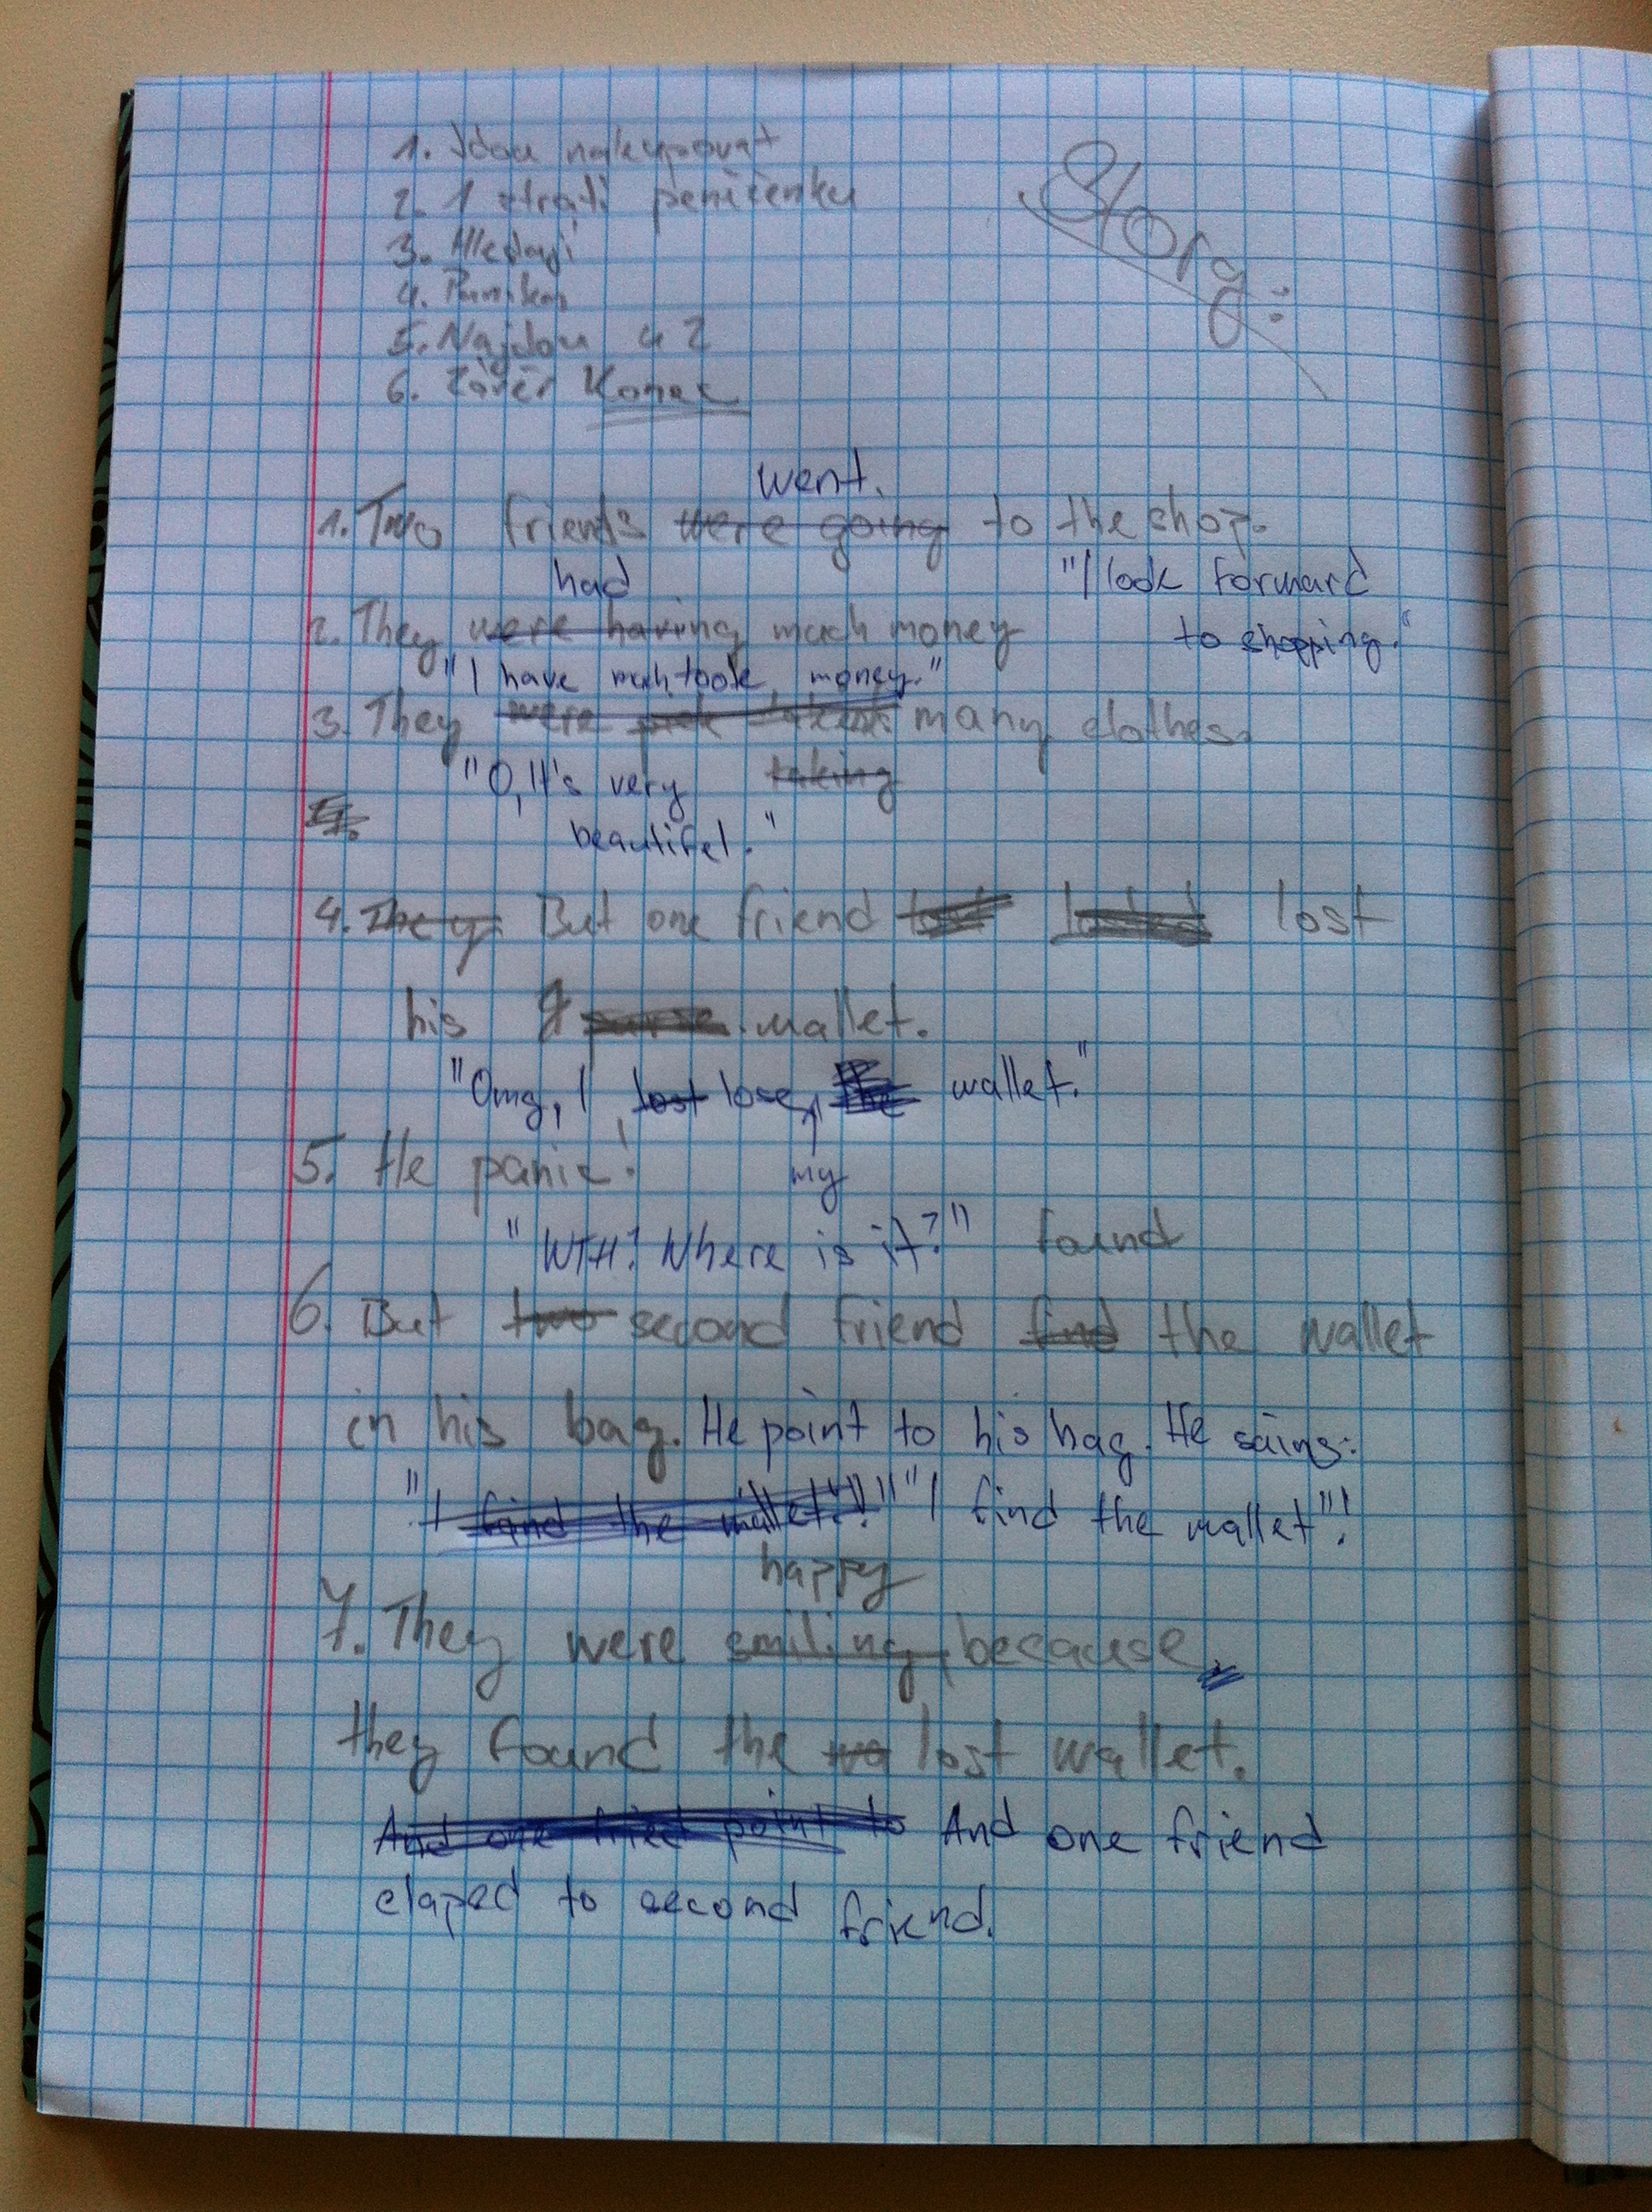 1. Jdou nakupovat
Story:
2. 1 ztratí peničenku
3. Hledají
4. Panikař
5. Najdou u 2
6. Závěr Konec
went.
1. Two friends were going to the shop.
had "I look forward
2. They were having much money to shopping."
"I have much took money."
3. They were many clothes.
"O, It's very taking
beautifel."
4. They But one friend lost lost
his wallet.
"Omg, I lost lose, the wallet."
5. He panic! my
"WTH? Where is it?" found
6. But two second friend find the wallet
in his bag. He point to his bag. He sains:
"I find the wallet"!!" "I find the wallet"!
happy
7. They were smiling, because
they found the lost wallet.
And one fried point to And one friend
claped to second friend.